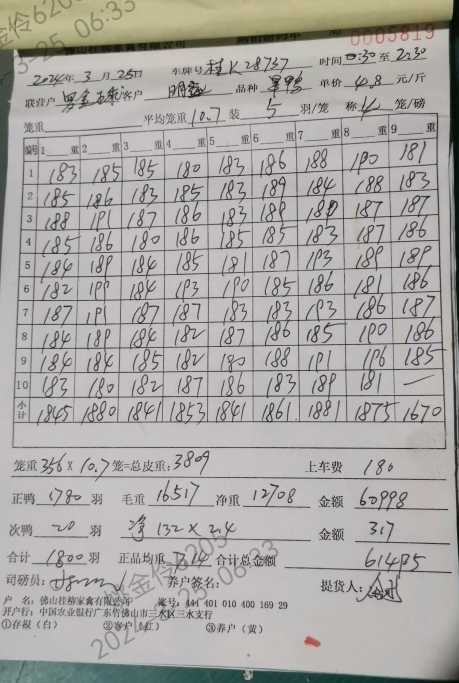 佛山桂柳家禽有限公司
0005819
2024年3月25日 车牌号 桂K28737 时间 0:30 至 2:30
联营户 客户 明 品种 单价 4.8 元/斤
笼重 平均笼重 10.7 装 5 羽/笼 称 4 笼/磅
编号 1 重 2 重 3 重 4 重 5 重 6 重 7 重 8 重 9 重
1 183 185 185 180 183 186 188 190 181
2 185 186 183 185 183 189 184 188 183
3 188 191 187 186 183 188 187 187
4 185 186 180 186 185 185 183 187 186
5 184 189 184 185 181 187 193 189 189
6 182 190 184 193 190 185 186 181 186
7 187 191 187 187 183 183 193 186 187
8 184 189 184 182 187 186 185 190 186
9 184 184 185 182 180 188 191 196 185
10 183 180 182 187 186 183 189 181 —
小计 1845 1880 1841 1853 1841 1861 1881 1875 1670
笼重 356 × 10.7 笼=总皮重: 3809 上车费 180
正鸭 1780 羽 毛重 16517 净重 12708 金额 60998
次鸭 20 羽 净 132 × 2.4 金额 317
合计 1800 羽 正品均重 7.14 合计总金额 61495
司磅员: 养户签名: 提货人:
户 名: 佛山桂柳家禽有限公司 账号: 444 401 010 400 169 29
开户行: 中国农业银行广东省佛山市三水区三水支行
①存根(白) ②客户(红) ③养户(黄)